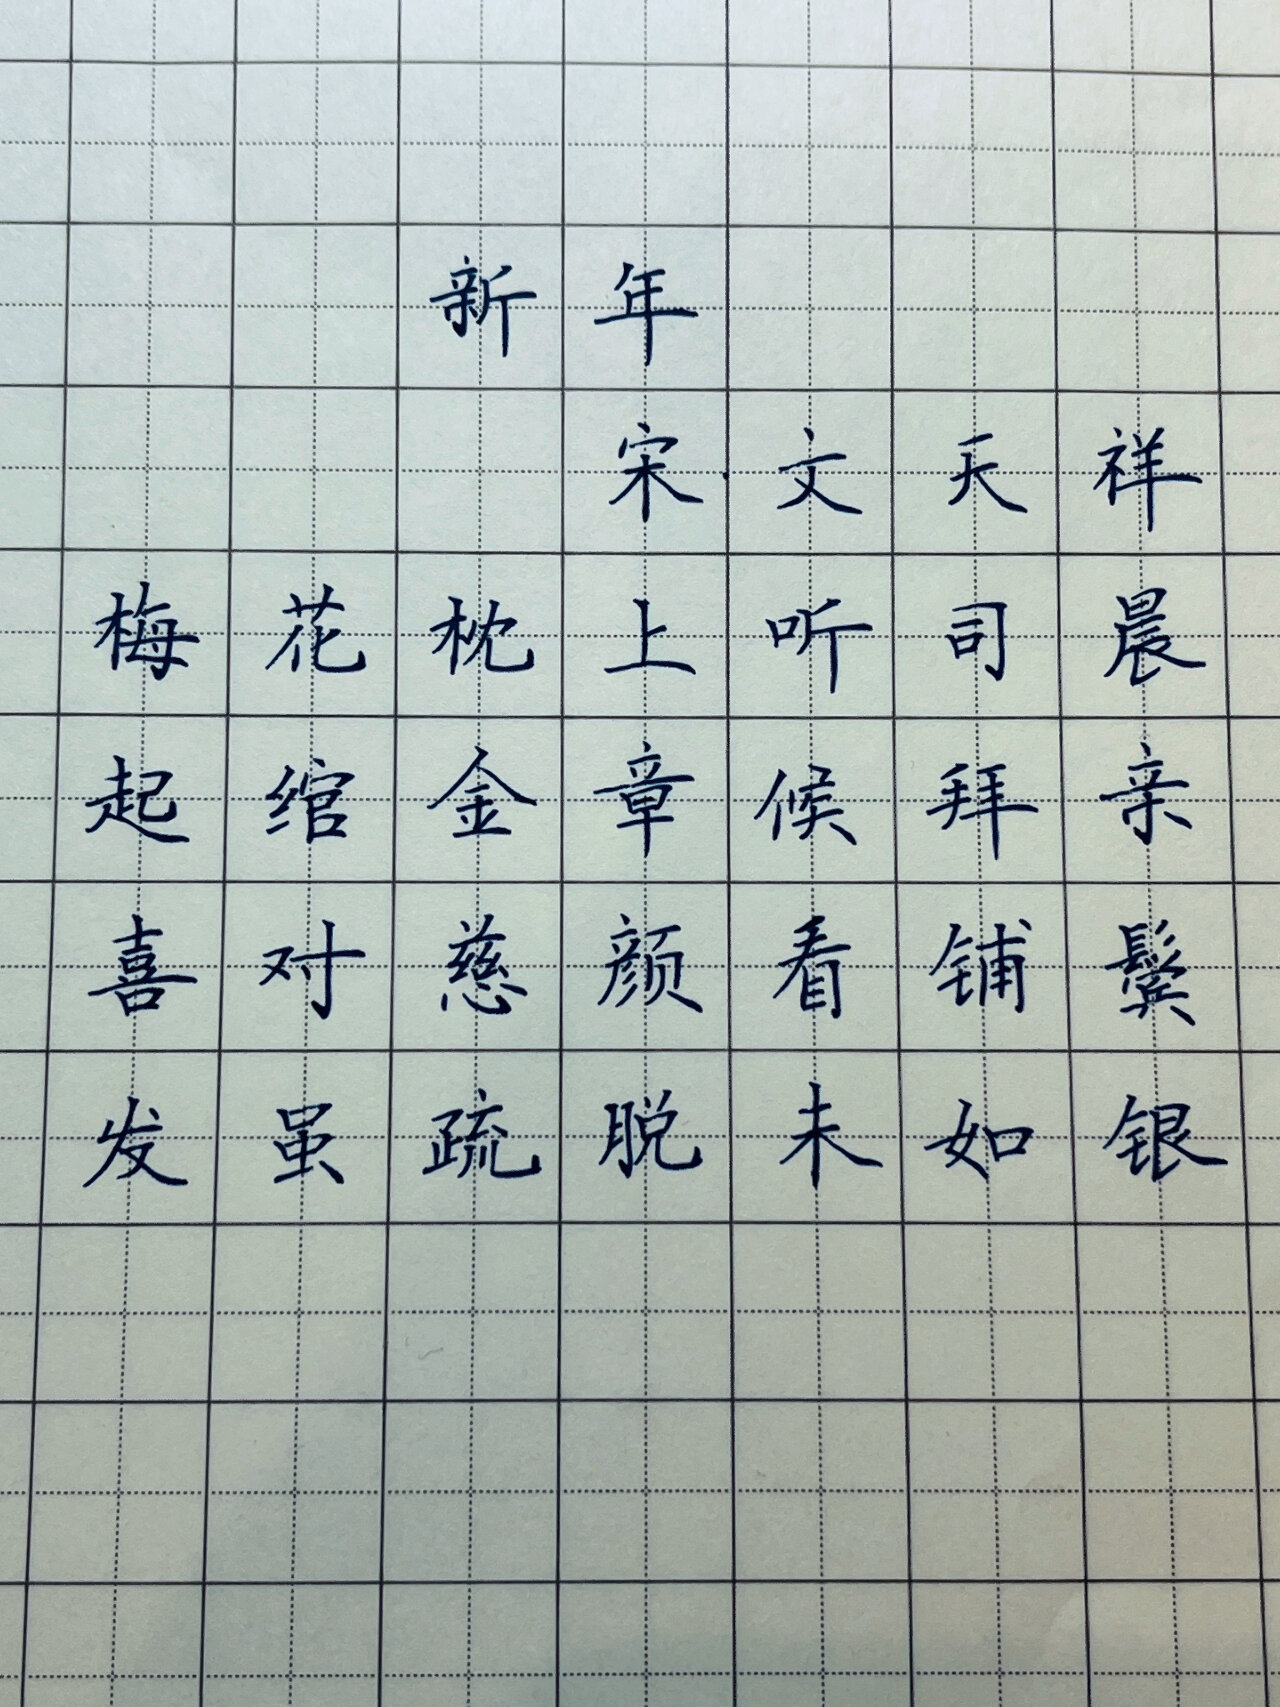 新年
宋·文天祥
梅花枕上听司晨
起绾金章候拜亲
喜对慈颜看铺鬓
发虽疏脱未如银